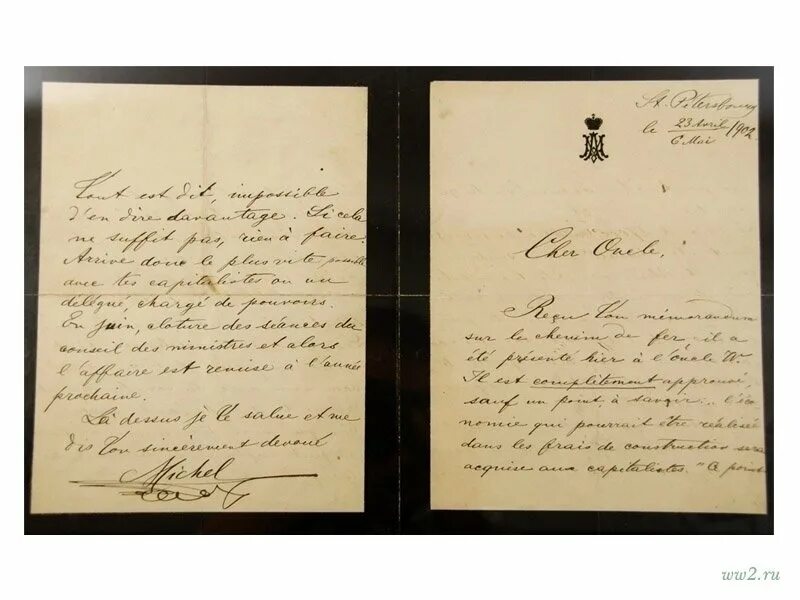 St. Petersbourg
le 23 Avril/6 Mai 1902
Cher Oncle,
Reçu Ton mémorandum
sur le chemin de fer, il a
été présenté hier à l'Oncle Wr.
Il est complètement approuvé,
sauf un point, à savoir: "l'éco
nomie qui pourrait être réalisée
dans les frais de construction sera
acquise aux capitalistes." Ce point
Tout est dit, impossible
d'en dire davantage. Si cela
ne suffit pas, rien à faire.
Arrive donc le plus vite possible
avec tes capitalistes ou un
délégué, chargé de pouvoirs.
En juin, cloture des séances du
conseil des ministres et alors
l'affaire est remise à l'année
prochaine.
Là dessus je Te salue et me
dis Ton sincèrement devoué
Michel
ww2.ru